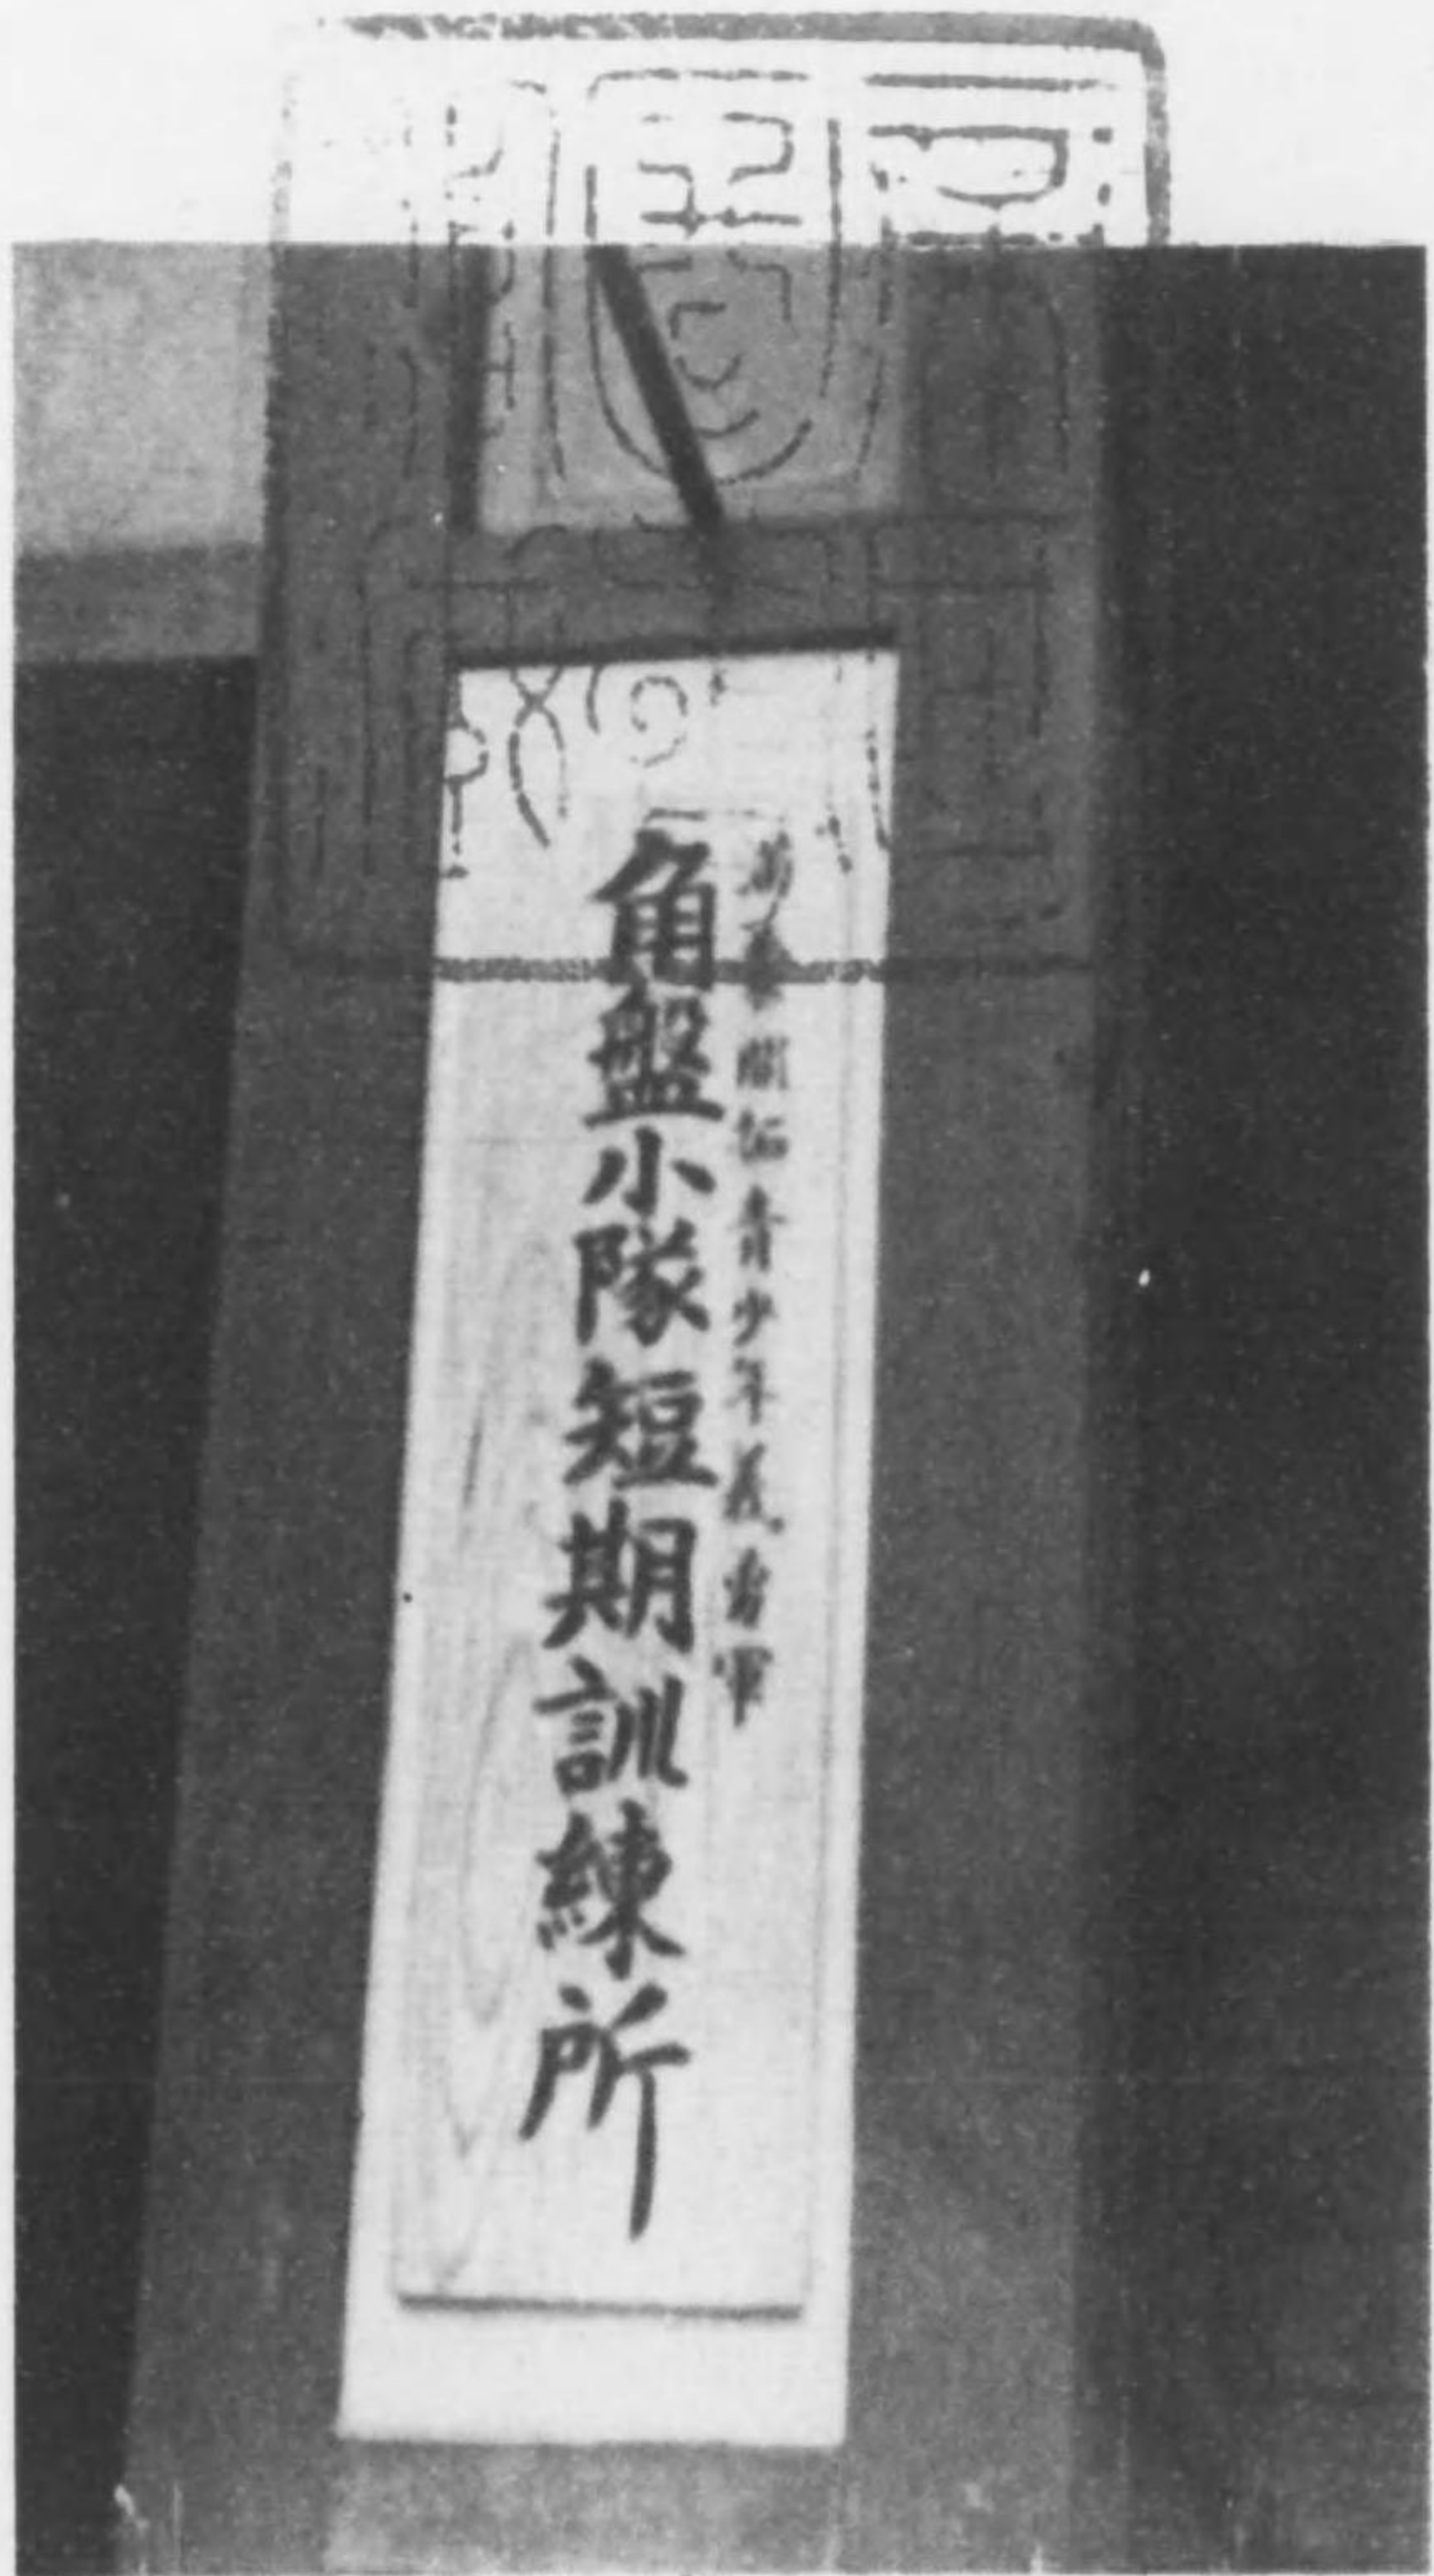 満蒙開拓青少年義勇軍
角盤小隊短期訓練所